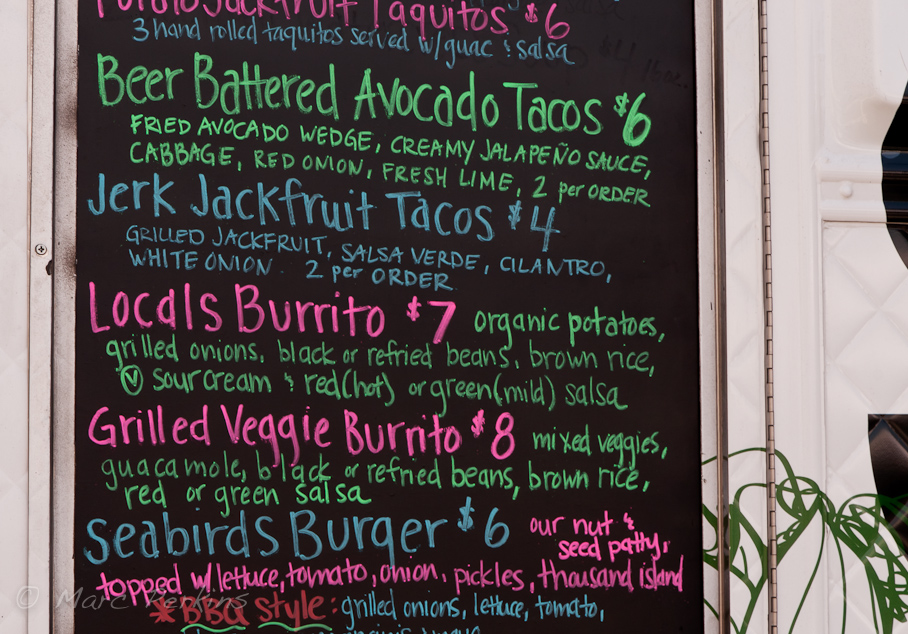 Potato Jackfruit Taquitos $6
3 hand rolled taquitos served w/guac & salsa
Beer Battered Avocado Tacos $6
FRIED AVOCADO WEDGE, CREAMY JALAPEÑO SAUCE,
CABBAGE, RED ONION, FRESH LIME, 2 per ORDER
Jerk Jackfruit Tacos $4
GRILLED JACKFRUIT, SALSA VERDE, CILANTRO,
WHITE ONION. 2 per ORDER
Locals Burrito $7 organic potatoes,
grilled onions, black or refried beans, brown rice,
Ⓥ sour cream & red(hot) or green(mild) salsa
Grilled Veggie Burrito $8 mixed veggies,
guacamole, black or refried beans, brown rice,
red or green salsa
Seabirds Burger $6 our nut &
seed patty,
topped w/lettuce, tomato, onion, pickles, thousand island
*BBQ Style: grilled onions, lettuce, tomato,
© Marc Perkins